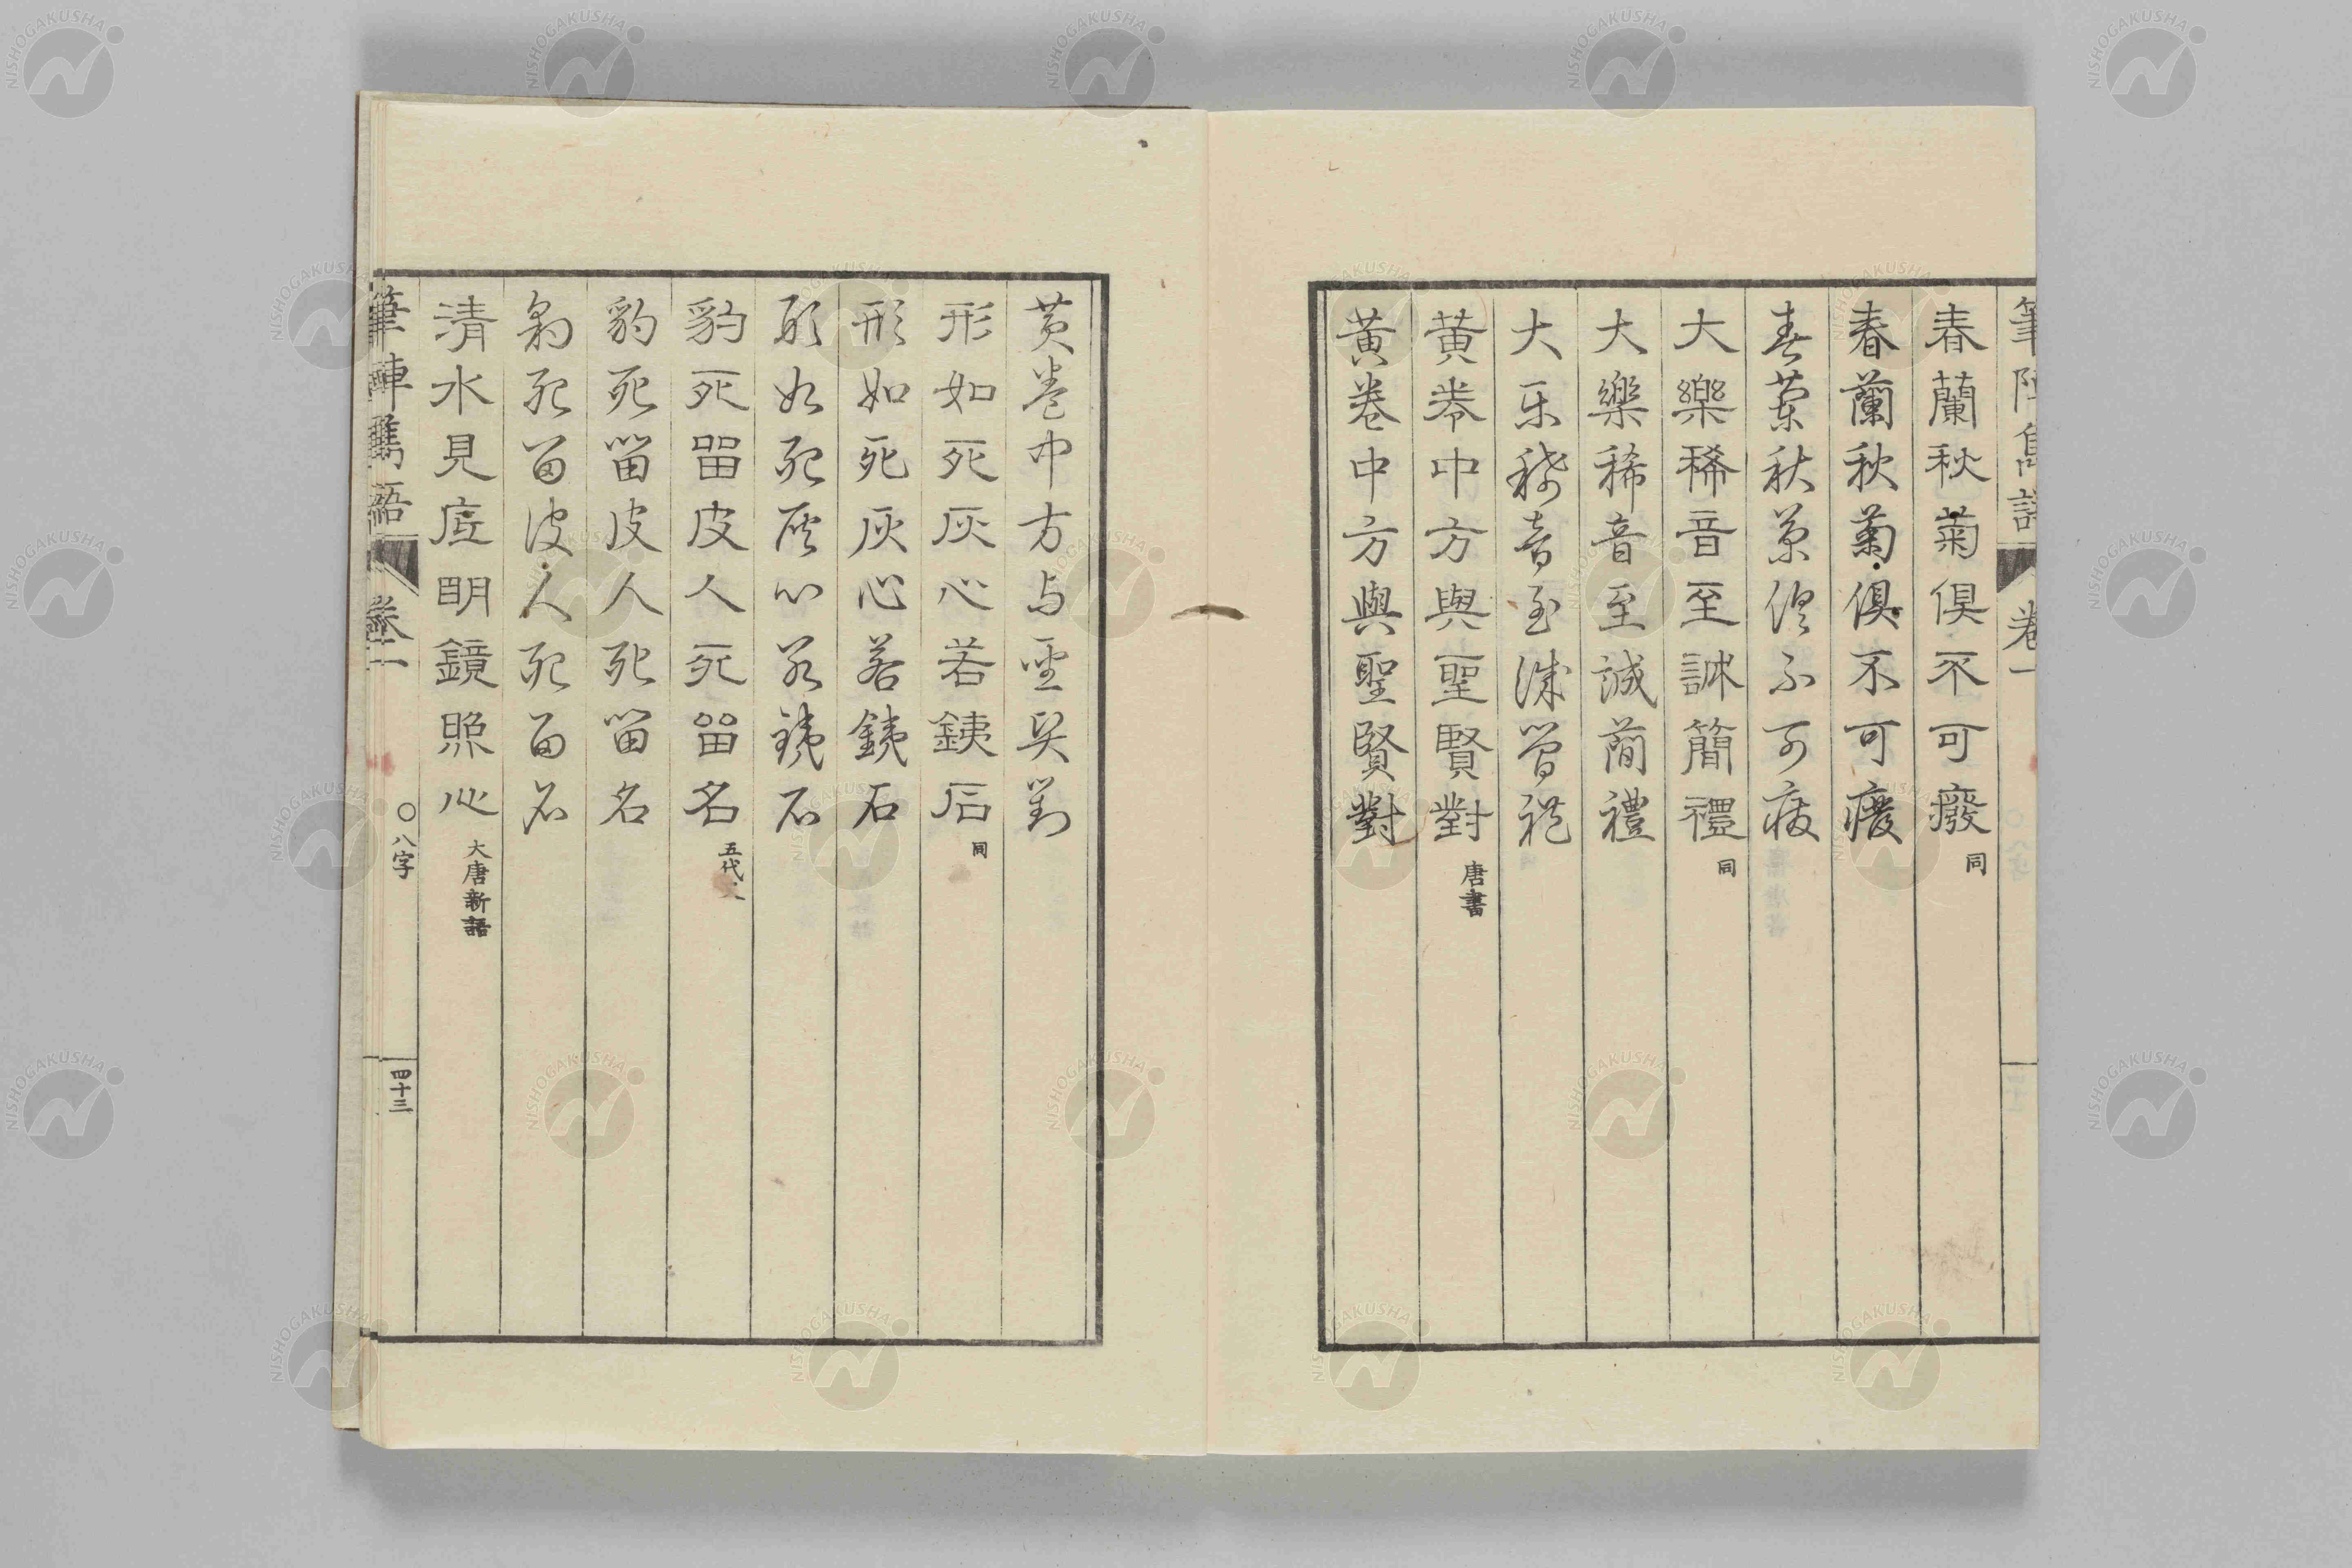 春蘭秋菊俱不可廢 同
春蘭秋菊俱不可癈
春蘭秋菊俱不可廢
大樂稀音至誠簡禮 同
大樂稀音至誠蕳禮
大乐稀音至誠簡禮
黃卷中方與聖賢對 唐書
黃卷中方與聖賢對
黃卷中方与聖賢對
形如死灰心若鐵石 同
形如死灰心若鐵石
形如死灰心若鐵石
豹死留皮人死留名 五代史
豹死留皮人死留名
豹死留皮人死留名
清水見底明鏡照心 大唐新語
筆陣雋語 卷一 〇八字 四十三
NISHOGAKUSHA